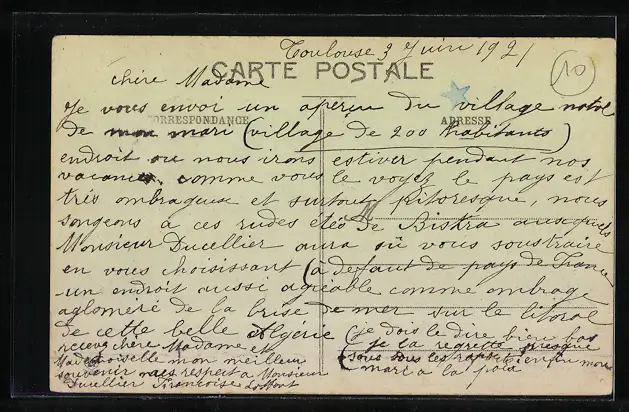 Toulouse 3 Juin 1921
10
CARTE POSTALE
chère Madame
CORRESPONDANCE
ADRESSE
Je vous envoi un aperçu du village natal
de mon mari (village de 200 habitants)
endroit ou nous irons estiver pendant nos
vacances. comme vous le voyez le pays est
très ombrageux et surtout pitoresque, nous
songeons à ces rudes étés de Biskra auxquels
Monsieur Ducellier aura où vous soustraire
en vous choisissant (à défaut de pays de France
un endroit aussi agréable comme ombrage
agloméré de la brise de mer sur le litoral
de cette belle Algérie (je dois le dire bien bas
je la regrette presque
sous tous les rapports enfin mon
mari a la paix
recevez chère Madame et
Mademoiselle mon meilleur
souvenir mes respect a Monsieur
Ducellier Françoise